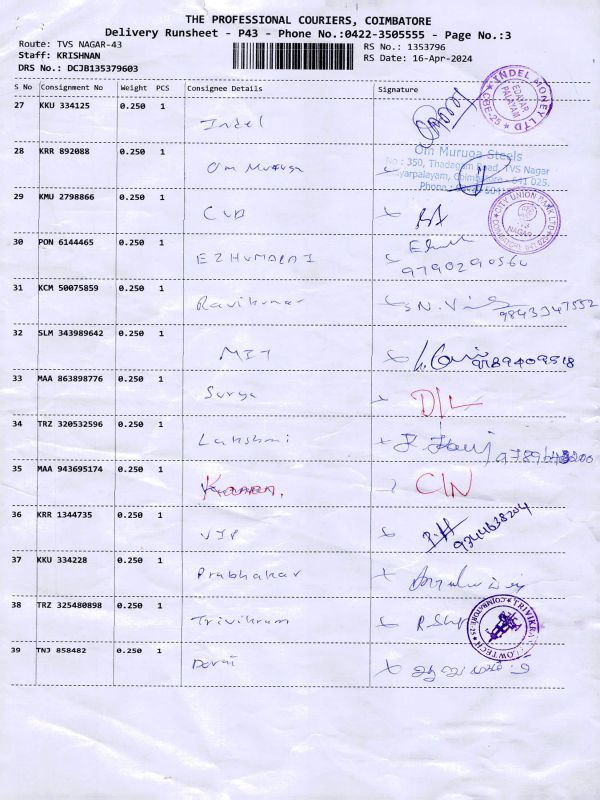 THE PROFESSIONAL COURIERS, COIMBATORE
Delivery Runsheet - P43 - Phone No.:0422-3505555 - Page No.:3
Route: TVS NAGAR-43 RS No.: 1353796
Staff: KRISHNAN RS Date: 16-Apr-2024
DRS No.: DCJB135379603
S No Consignment No Weight PCS Consignee Details Signature
27 KKU 334125 0.250 1
Indel
INDEL MONEY LTD
EDAYAR PALAYAM
CBE-25
28 KRR 892088 0.250 1
Om Muruga
Om Muruga Steels
No : 350, Thadagam Road, TVS Nagar
Coimbatore - 641 025.
Phone
29 KMU 2798866 0.250 1
CUB
CITY UNION BANK LTD
NAGAR
30 PON 6144465 0.250 1
EZHUMALAI
31 KCM 50075859 0.250 1
Ravikumar
32 SLM 343989642 0.250 1
9789409518
33 MAA 863898776 0.250 1
Surya D/L
34 TRZ 320532596 0.250 1
Lakshmi
35 MAA 943695174 0.250 1
CIN
36 KRR 1344735 0.250 1
VIP
9344638204
37 KKU 334228 0.250 1
Prabhakar
38 TRZ 325480898 0.250 1
Trivikram
39 TNJ 858482 0.250 1
Dorai